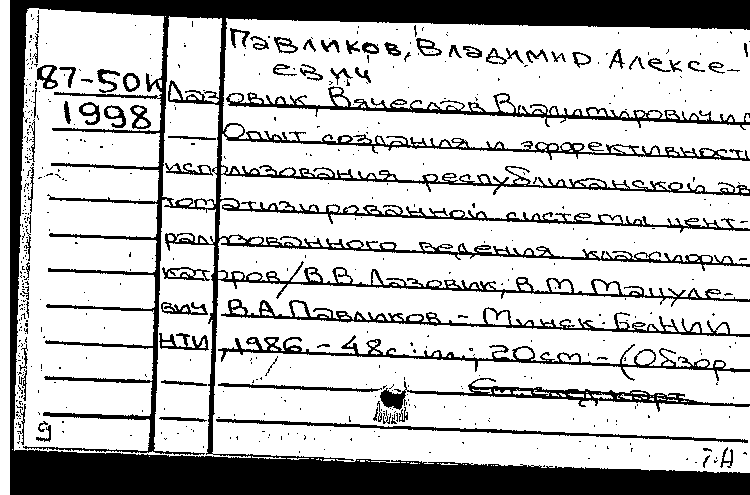 Павликов, Владимир Алексе-
евич
87-50К
1998
Лазовик, Вячеслав Владимирович и д
Опыт создания и эффективност
использования республиканской ав
томатизированной системы цент-
рализованного ведения классифи-
каторов / В.В. Лазовик, В.М. Мацуле-
вич, В.А. Павликов. - Минск: БелНИИ
НТИ, 1986. - 48с.: ил.; 20см. - (Обзор
См. след. карт.
9